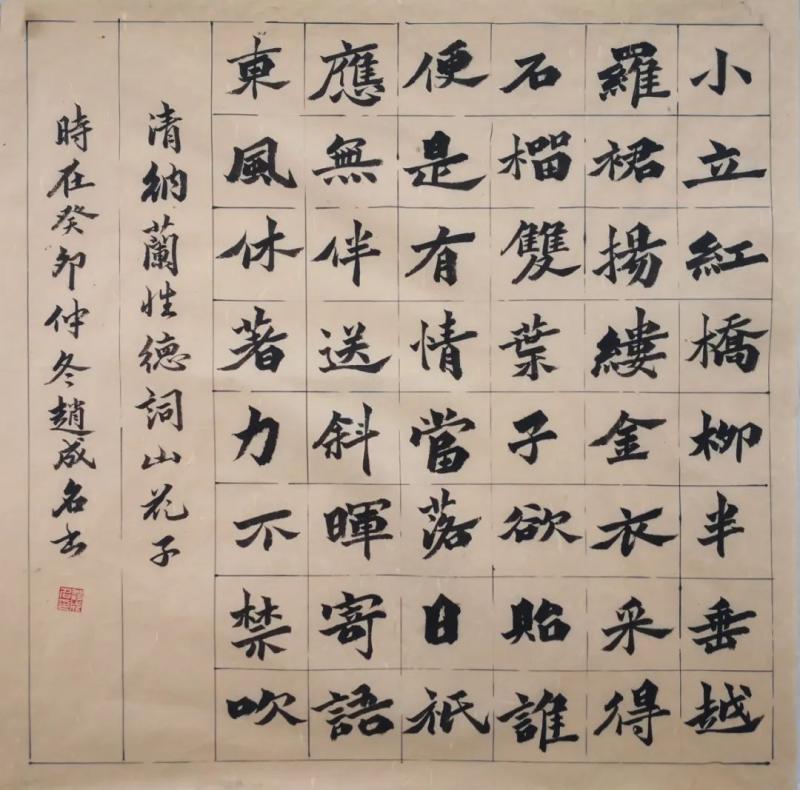 小立紅橋柳半垂越
羅裙揚縷金衣采得
石榴雙葉子欲貽誰
便是有情當落日祇
應無伴送斜暉寄語
東風休著力不禁吹
清納蘭性德詞山花子
時在癸卯仲冬趙成名书